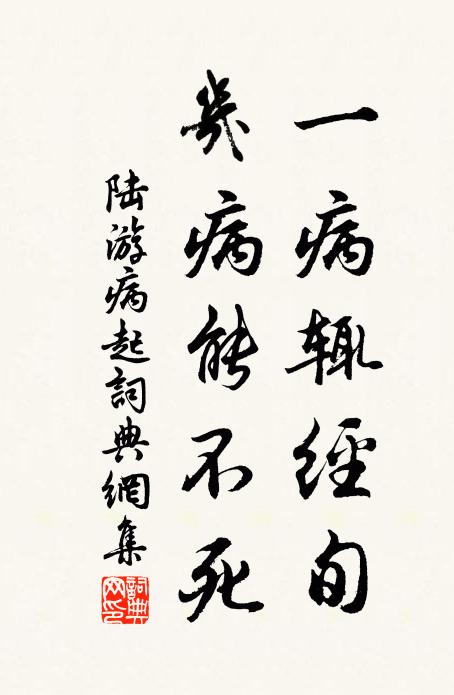 一病輒經旬
幾病能不死
陆游病起詞典網集
詞典網印